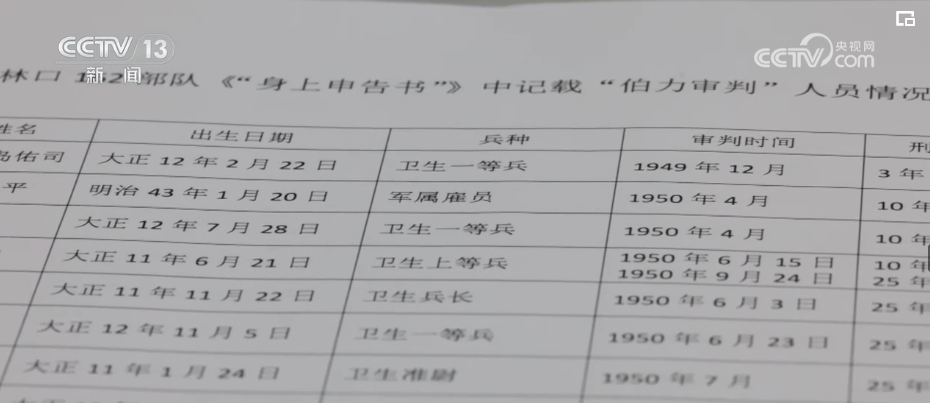 CCTV 13
新闻
CCTV 央视网
com
林口 162 部队《“身上申告书”》中记载“伯力审判”人员情况
姓名 出生日期 兵种 审判时间 刑
岛佑司 大正 12 年 2 月 22 日 卫生一等兵 1949 年 12 月 3 年
平 明治 43 年 1 月 20 日 军属雇员 1950 年 4 月 10 年
大正 12 年 7 月 28 日 卫生一等兵 1950 年 4 月 10 年
大正 11 年 6 月 21 日 卫生上等兵 1950 年 6 月 15 日 10 年
1950 年 9 月 24 日 25 年
大正 11 年 11 月 22 日 卫生兵长 1950 年 6 月 3 日 25 年
大正 12 年 11 月 5 日 卫生一等兵 1950 年 6 月 23 日 25 年
大正 11 年 1 月 24 日 卫生准尉 1950 年 7 月 25 年